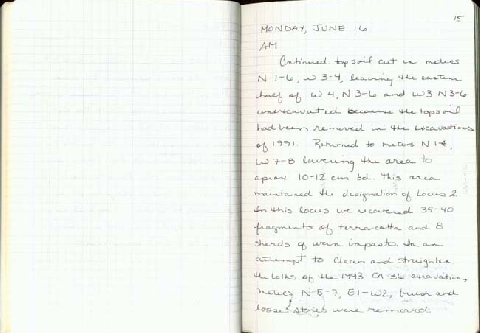 15
MONDAY, JUNE 6
AM
Continued topsoil cut in meters
N 1-6, W 3-4, leaving the western
half of W4, N3-6 and W3 N3-6
unexcavated because the topsoil
had been removed in the excavations
of 1991. Returned to meters N1-4,
W7-8 lowering the area to
aprox 10-12 cm bd. This area
maintained the designation of Locus 2
In this locus we recovered 35-40
fragments of terracotta and 8
sherds of warm impasto. In an
attempt to clean and straighten
the balks of the 1993 CA 36 excavation,
meters N 5-?, E1-W2, brush and
loose stones were removed